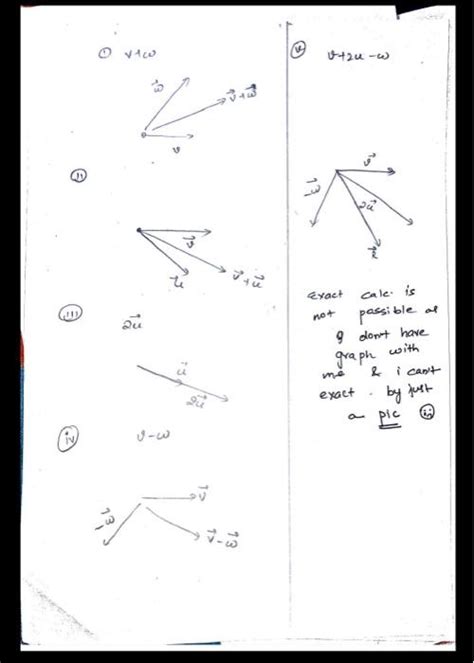 (i) v+ω
ω⃗
v⃗+ω⃗
v
(ii)
v⃗
u⃗
v⃗+u⃗
(iii) 2u⃗
u⃗
2u⃗
(iv) v-ω
v⃗
-ω⃗
v⃗-ω⃗
(v) v+2u-ω
v⃗
-ω⃗
2u⃗
u⃗
exact calc. is
not possible as
I don't have
graph with
me & i can't
exact . by just
a pic